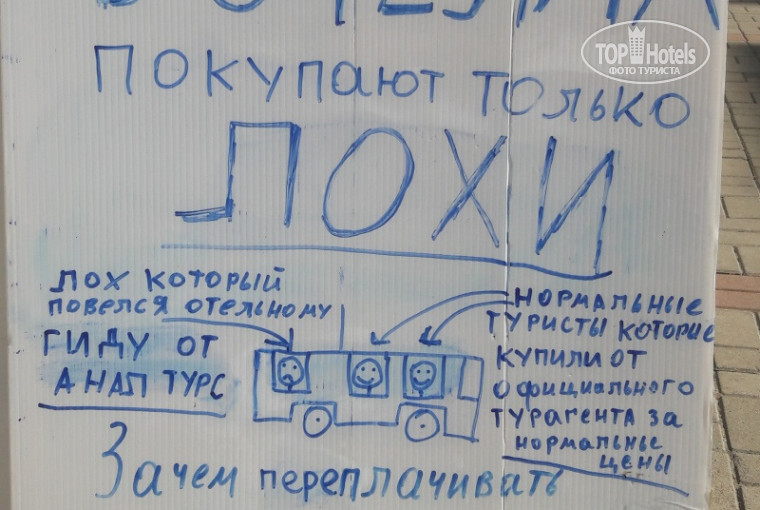 ПОКУПАЮТ ТОЛЬКО
ЛОХИ
ЛОХ КОТОРЫЙ
ПОВЕЛСЯ ОТЕЛЬНОМУ
ГИДУ ОТ
АНАП ТУРС
НОРМАЛЬНЫЕ
ТУРИСТЫ КОТОРЫЕ
КУПИЛИ ОТ
ОФИЦИАЛЬНОГО
ТУРАГЕНТА ЗА
НОРМАЛЬНЫЕ
ЦЕНЫ
Зачем переплачивать
TOP Hotels
ФОТО ТУРИСТА